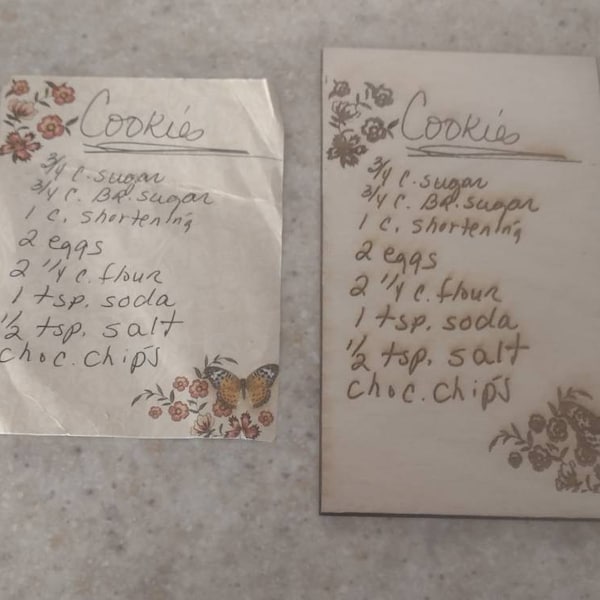 Cookies
3/4 c. sugar
3/4 c. BR. sugar
1 c. shortening
2 eggs
2 1/4 c. flour
1 tsp. soda
1/2 tsp. salt
choc. chips
Cookies
3/4 c. sugar
3/4 c. BR. sugar
1 c. shortening
2 eggs
2 1/4 c. flour
1 tsp. soda
1/2 tsp. salt
choc. chips